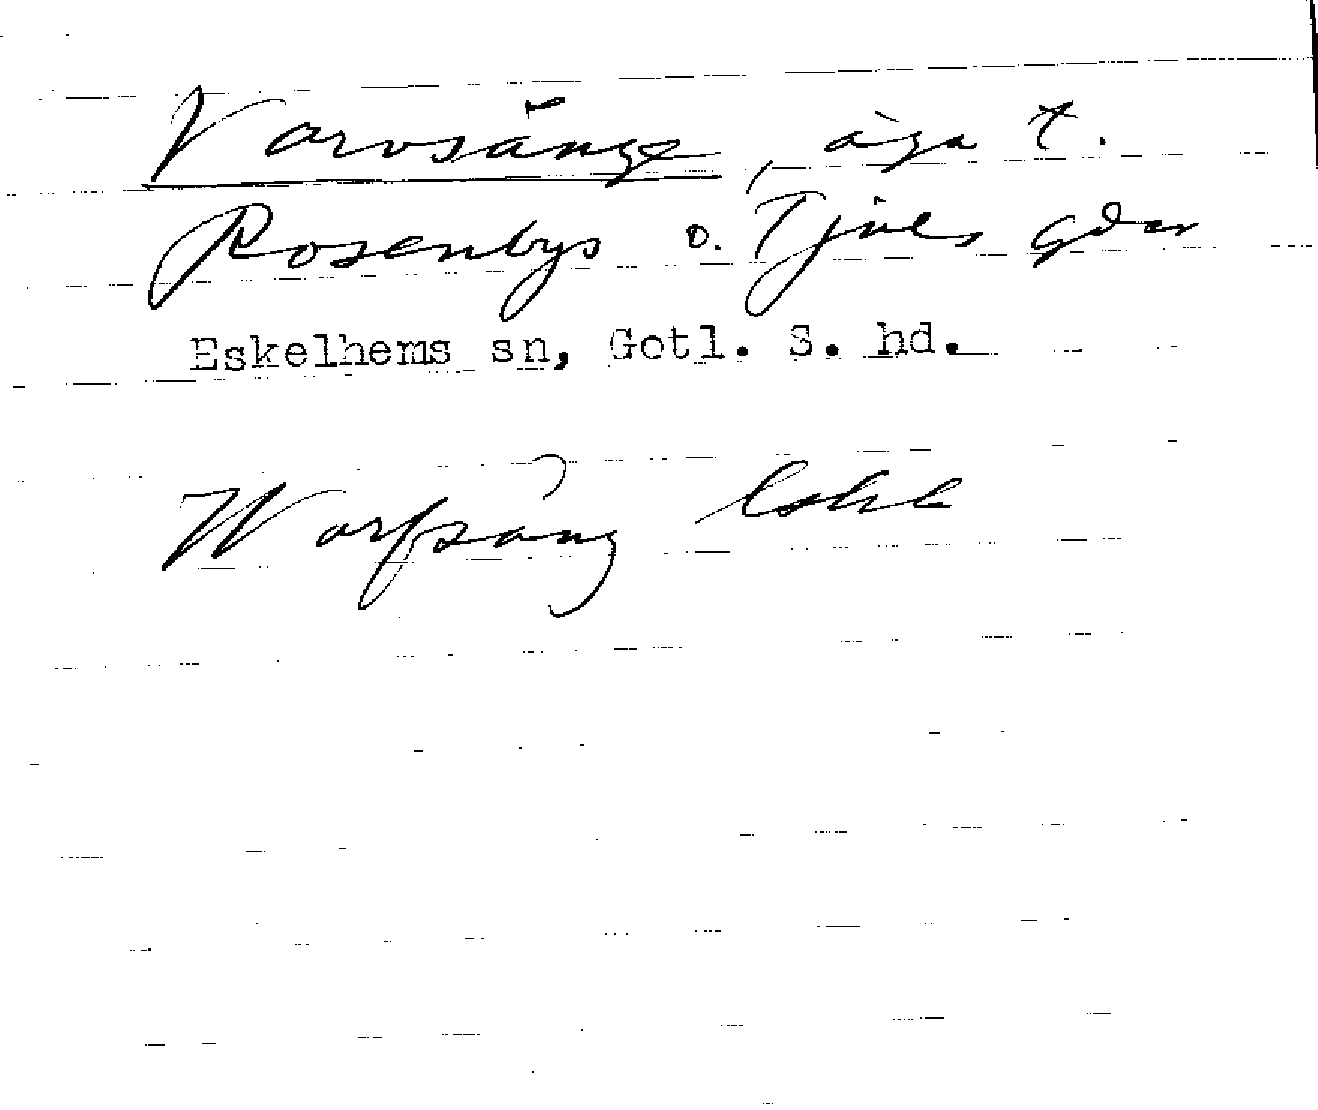 Varvsänge, äga t.
Rosenbys o. Tjuls gdar
Eskelhems sn, Gotl. S. hd.
Warfsäng